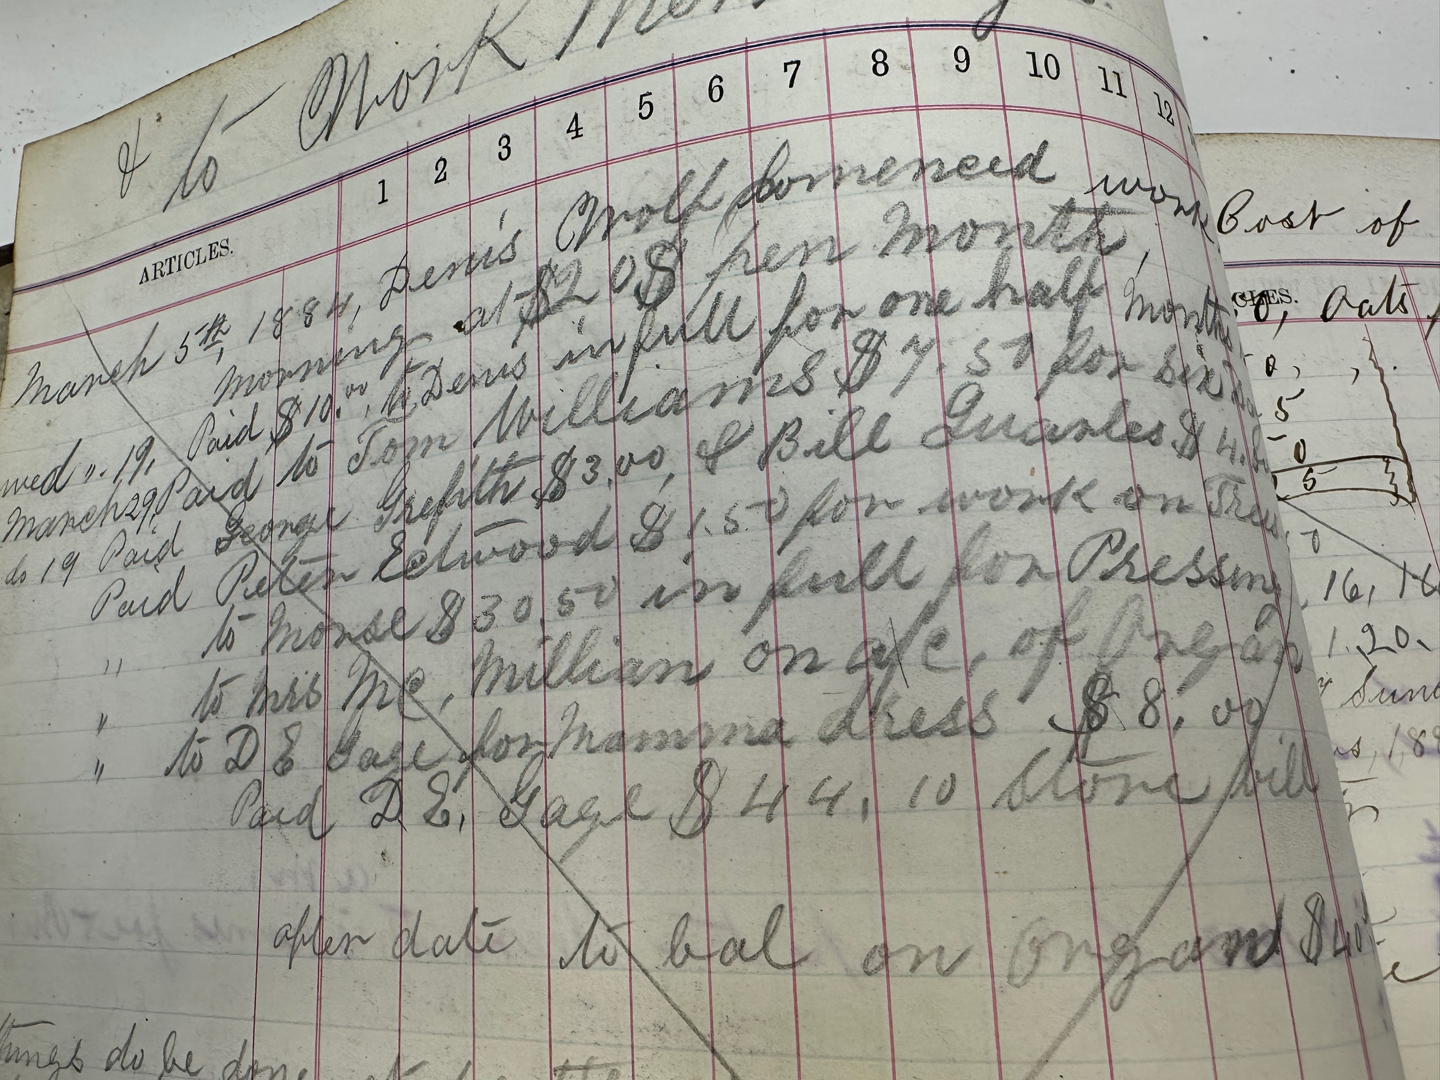 & to Work
1 2 3 4 5 6 7 8 9 10 11 12
ARTICLES.
March 5th, 1884, Denis Wolf Comenced work
Morning at $20$ per Month,
Wed ". 19, Paid $10.00, to Denis in full for one half Month
March 29, Paid to Tom Williams $7.50 for six Da
do 19 Paid George Grefith $3.00, & Bill Quarles $4.50
Paid Peter Edwood $1.50 for work on Trees
" to Morse $30.50 in full for Pressing
" to Mrs Mc, Millian on a/c, of Organ
" to D E Gage for Mamma dress $8.00
Paid D E, Gage $44.10 Store bill
after date to bal on Organd $40
things do be done
Cost of
CLES. Oats,
0,
5
0
5
0
16, 16
1.20.